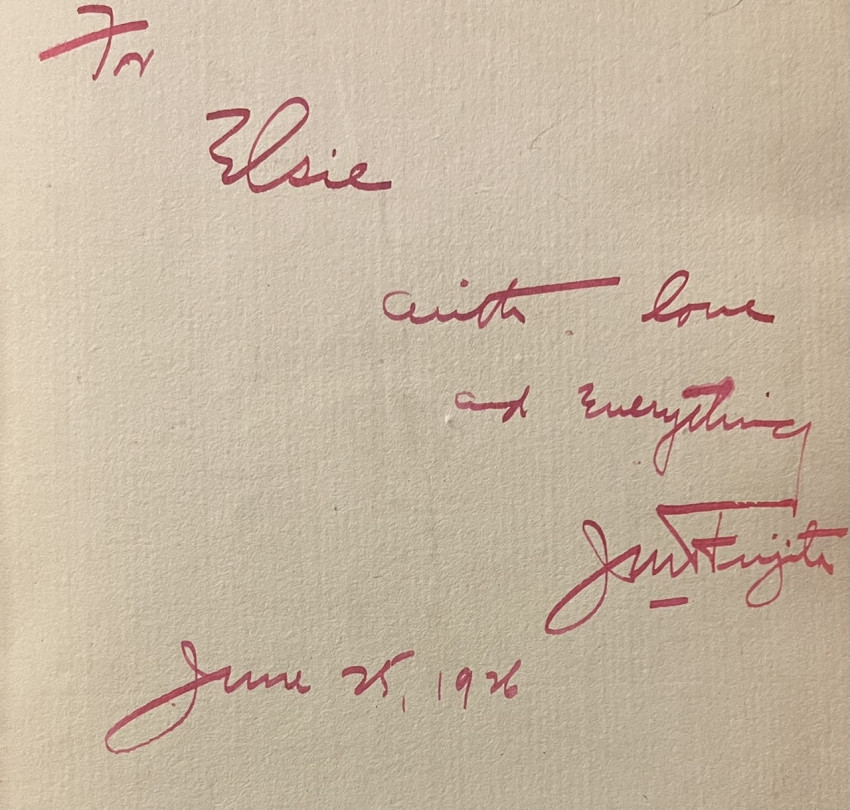 To
Elsie
with love
and Everything
Jun Fujita
June 25, 1926